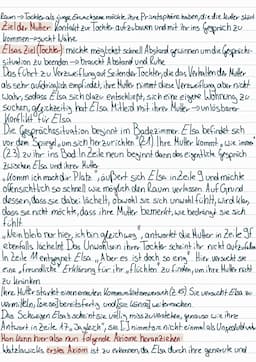 Raum → Tochter als junge Erwachsene möchte ihre Privatsphäre haben, die die Mutter stört
Ziel der Mutter: Kontakt zur Tochter aufzubauen und mit ihr ins Gespräch zu
kommen → sucht Nähe
Elsas Ziel (Tochter): möchte möglichst schnell Abstand gewinnen um die Gesprächs-
situation zu beenden → braucht Abstand und Ruhe
Das führt zu Verzweiflung auf Seiten der Tochter, die das Verhalten der Mutter
als sehr aufdringlich empfindet, ihre Mutter nimmt diese Verzweiflung aber nicht
wahr, sodass Elsa sich dazu entschließt, sich eine eigene Wohnung zu
suchen, gleichzeitig hat Elsa Mitleid mit ihrer Mutter → unlösbarer
Konflikt für Elsa
Die Gesprächssituation beginnt im Badezimmer. Elsa befindet sich
vor dem Spiegel, um sich herzurichten (Z1). Ihre Mutter kommt „wie immer“
(Z3) zu ihr ins Bad. In Zeile neun beginnt dann das eigentliche Gespräch
zwischen Elsa und ihrer Mutter.
„Komm ich mach dir Platz“, äußert sich Elsa in Zeile 9 und möchte
offensichtlich so schnell wie möglich den Raum verlassen. Auf Grund
dessen, dass sie dabei lächelt, obwohl sie sich unwohl fühlt, wird klar,
dass sie nicht möchte, dass ihre Mutter bemerkt, wie bedrängt sie sich
fühlt.
„Nein bleib nur hier, ich bin gleich weg“, antwortet die Mutter in Zeile 9f
ebenfalls lächelnd. Das Unwohlsein ihrer Tochter scheint ihr nicht aufzufallen.
In Zeile 11 entgegnet Elsa „Aber es ist doch so eng“. Hier versucht sie
eine „freundliche“ Erklärung für ihr „flüchten“ zu finden, um ihre Mutter nicht
zu kränken.
Ihre Mutter startet einen erneuten Kommunikationsversuch (Z15). Elsa versucht
bereitfertig und
Das Schweigen Elsas scheint sie völlig misszuverstehen, genauso wie ihre
Antwort in Zeile 17 „Ja gleich“, sie nimmt es nicht einmal als Ungeduld wahr.
Man kann hier also nun folgende Axiome heranziehen:
Watzlawicks erstes Axiom ist zu erkennen, da Elsa durch ihre genervte und